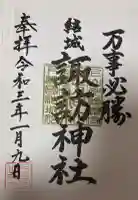 万事必勝
結城
諏訪神社
奉拝 令和三年一月九日